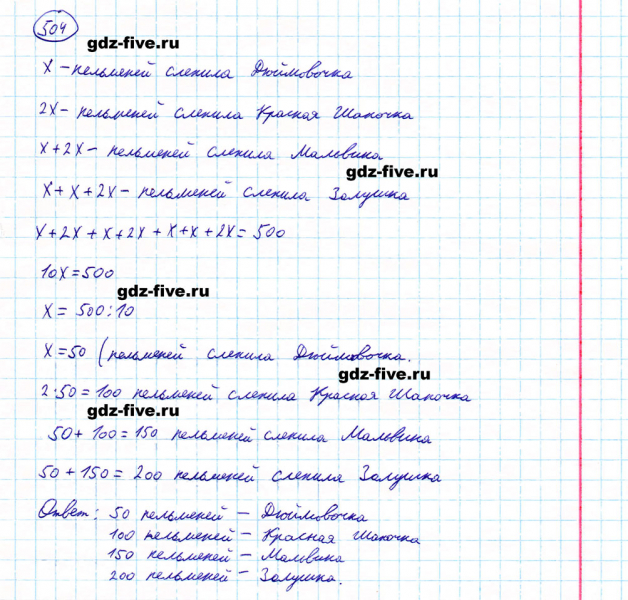 504
gdz-five.ru
x – пельменей слепила Дюймовочка
2x – пельменей слепила Красная Шапочка
x + 2x – пельменей слепила Мальвина
gdz-five.ru
x + x + 2x – пельменей слепила Золушка
x + 2x + x + 2x + x + x + 2x = 500
10x = 500
gdz-five.ru
x = 500 : 10
x = 50 (пельменей слепила Дюймовочка.
gdz-five.ru
2 · 50 = 100 пельменей слепила Красная Шапочка
gdz-five.ru
50 + 100 = 150 пельменей слепила Мальвина
50 + 150 = 200 пельменей слепила Золушка
Ответ: 50 пельменей – Дюймовочка
100 пельменей – Красная Шапочка
150 пельменей – Мальвина
200 пельменей – Золушка.